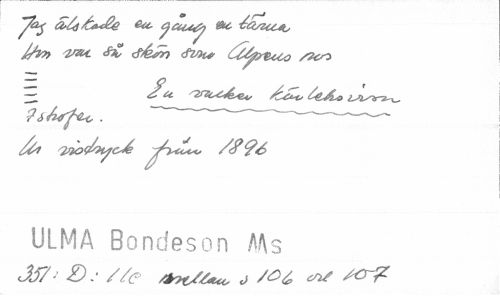 Jag älskade en gång en tärna
Hon var så skön som Alpens ros
En vacker kärleksvisa
7 strofer.
Ur vistryck från 1896
ULMA Bondeson Ms
351: D: 11c mellan s 106 och 107